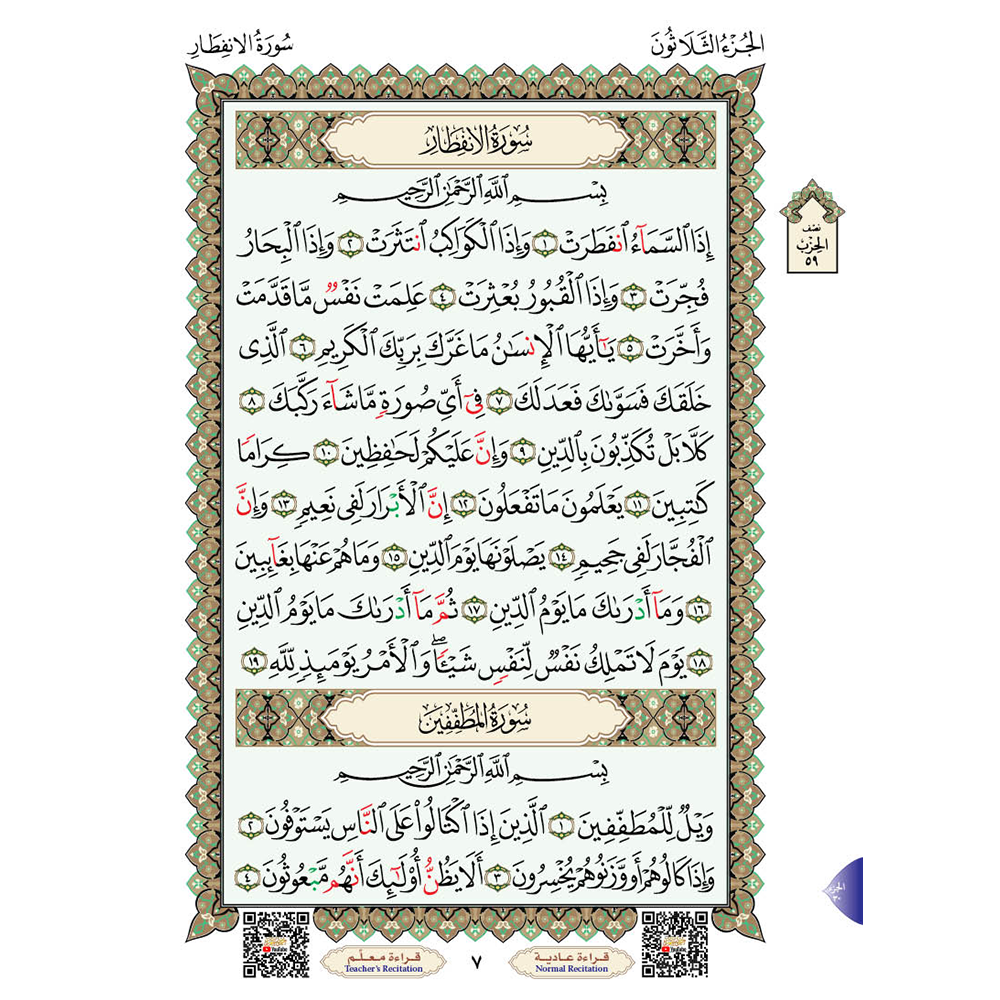 الجُزْءُ الثَّلَاثُونَ
سُورَةُ الانفِطَارِ
سُورَةُ الانفِطَارِ
بِسْمِ ٱللَّهِ ٱلرَّحْمَٰنِ ٱلرَّحِيمِ
إِذَا ٱلسَّمَآءُ ٱنفَطَرَتْ ١ وَإِذَا ٱلْكَوَاكِبُ ٱنتَثَرَتْ ٢ وَإِذَا ٱلْبِحَارُ
فُجِّرَتْ ٣ وَإِذَا ٱلْقُبُورُ بُعْثِرَتْ ٤ عَلِمَتْ نَفْسٌ مَّا قَدَّمَتْ
وَأَخَّرَتْ ٥ يَٰٓأَيُّهَا ٱلْإِنسَٰنُ مَا غَرَّكَ بِرَبِّكَ ٱلْكَرِيمِ ٦ ٱلَّذِى
خَلَقَكَ فَسَوَّىٰكَ فَعَدَلَكَ ٧ فِىٓ أَىِّ صُورَةٍ مَّا شَآءَ رَكَّبَكَ ٨
كَلَّا بَلْ تُكَذِّبُونَ بِٱلدِّينِ ٩ وَإِنَّ عَلَيْكُمْ لَحَٰفِظِينَ ١٠ كِرَامًا
كَٰتِبِينَ ١١ يَعْلَمُونَ مَا تَفْعَلُونَ ١٢ إِنَّ ٱلْأَبْرَارَ لَفِى نَعِيمٍ ١٣ وَإِنَّ
ٱلْفُجَّارَ لَفِى جَحِيمٍ ١٤ يَصْلَوْنَهَا يَوْمَ ٱلدِّينِ ١٥ وَمَا هُمْ عَنْهَا بِغَآئِبِينَ
١٦ وَمَآ أَدْرَىٰكَ مَا يَوْمُ ٱلدِّينِ ١٧ ثُمَّ مَآ أَدْرَىٰكَ مَا يَوْمُ ٱلدِّينِ
١٨ يَوْمَ لَا تَمْلِكُ نَفْسٌ لِّنَفْسٍ شَيْـًٔا ۖ وَٱلْأَمْرُ يَوْمَئِذٍ لِّلَّهِ ١٩
سُورَةُ المُطَفِّفِينَ
بِسْمِ ٱللَّهِ ٱلرَّحْمَٰنِ ٱلرَّحِيمِ
وَيْلٌ لِّلْمُطَفِّفِينَ ١ ٱلَّذِينَ إِذَا ٱكْتَالُوا۟ عَلَى ٱلنَّاسِ يَسْتَوْفُونَ ٢
وَإِذَا كَالُوهُمْ أَو وَّزَنُوهُمْ يُخْسِرُونَ ٣ أَلَا يَظُنُّ أُو۟لَٰٓئِكَ أَنَّهُم مَّبْعُوثُونَ ٤
نصْف
الحِزْب
٥٩
YouTube
قراءة معلّم
Teacher's Recitation
٧
قراءة عادية
Normal Recitation
YouTube